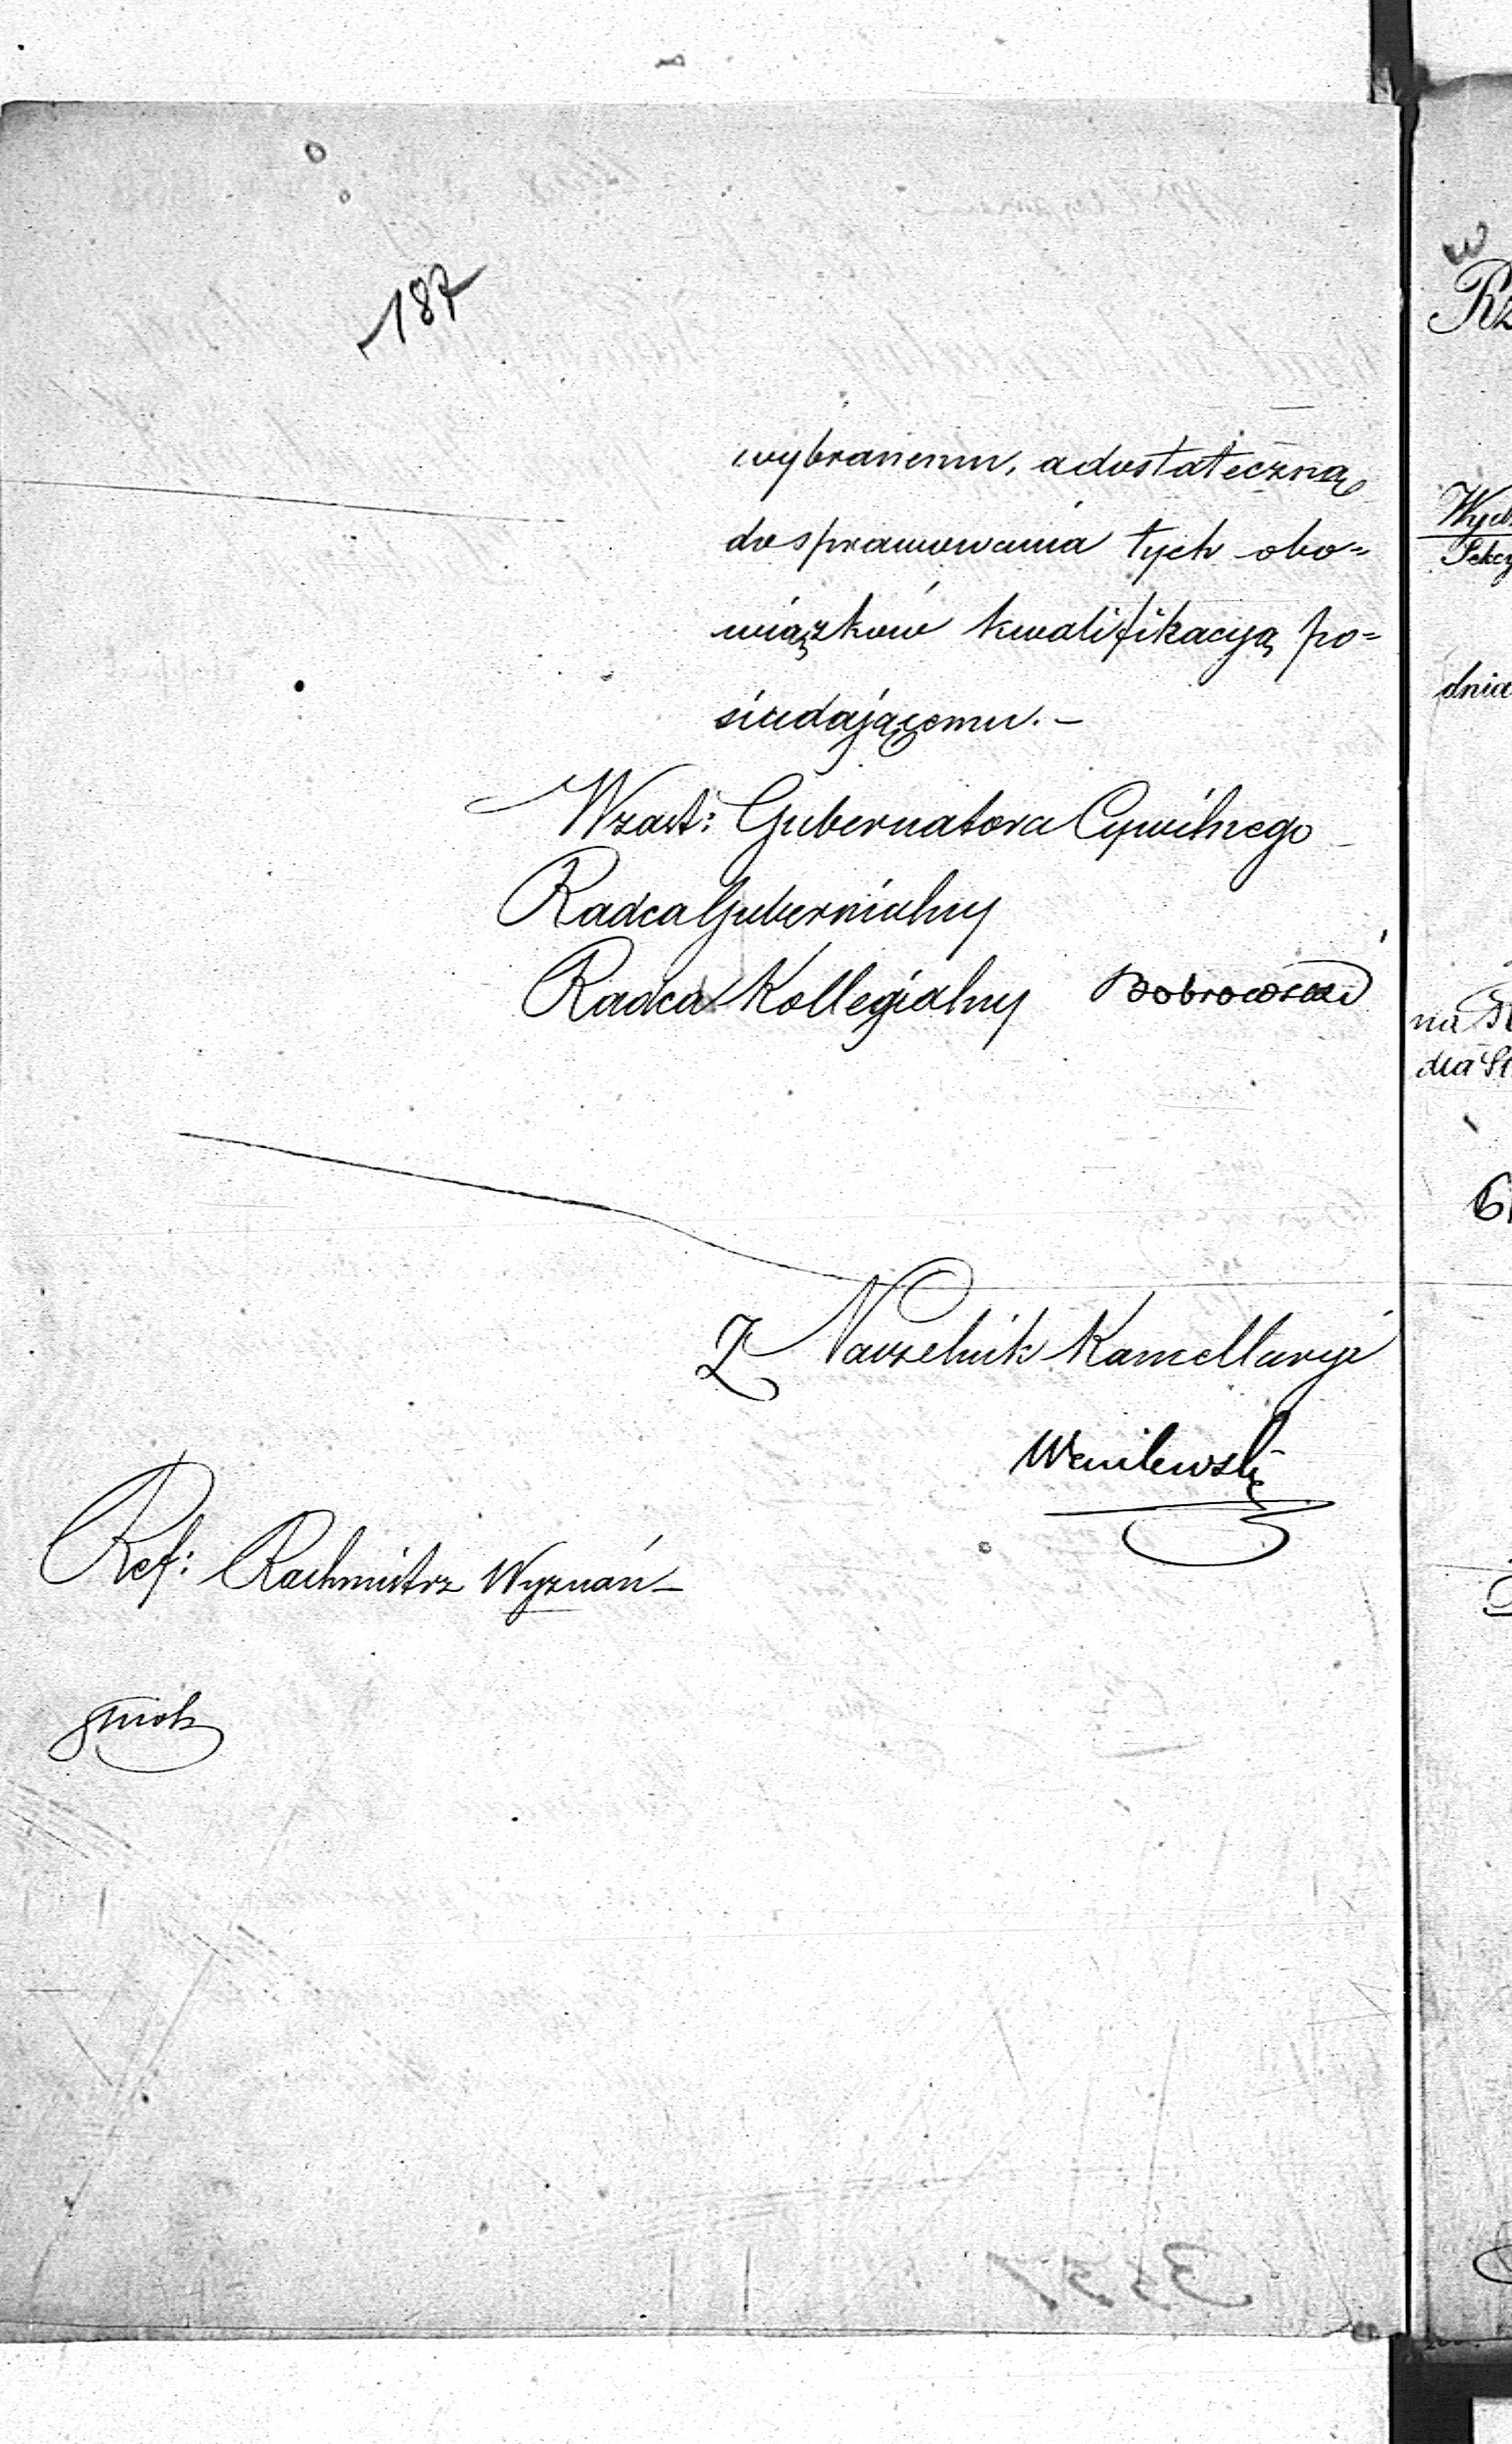 187
wybranemu, a dostateczną
do sprawowania tych obo=
wiązków kwalifikacyą po=
siadającemu. —
W zast: Gubernatora Cywilnego
Radca Gubernialny
Radca Kollegialny Dobrowolski
Z Naczelnik Kancellaryi
Ref: Rachmistrz Wyznań —
W
Rz
Wydz
Sekcy
dnia
na
dla St